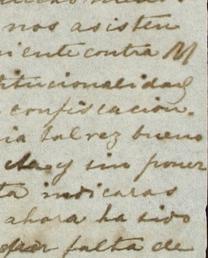 nos asisten
niente contra M
titucionalidad
confiscacion.
ia talvez bueno
y sin poner
ta indicaras
ahora ha sido
por falta de